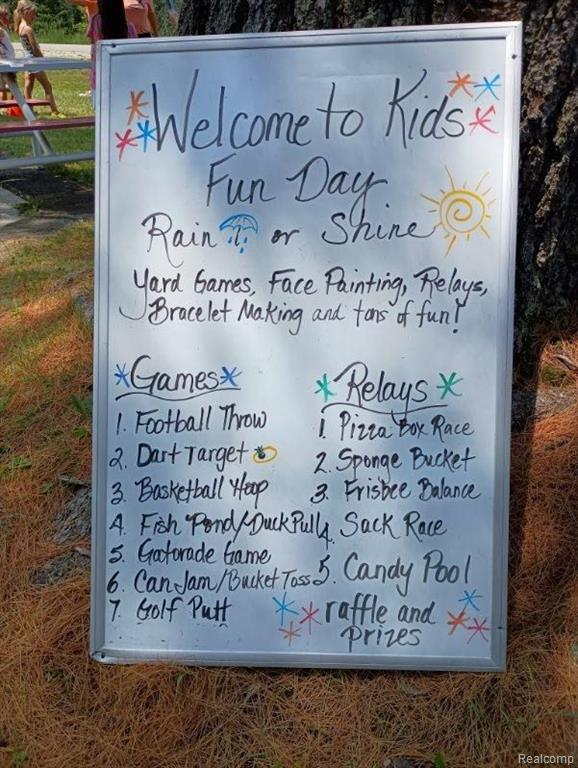 Welcome to Kids
Fun Day
Rain or Shine
Yard Games, Face Painting, Relays,
Bracelet Making and tons of fun!
Games
1. Football Throw
2. Dart Target
3. Basketball Hoop
4. Fish Pond/Duck Pull
5. Gatorade Game
6. Can Jam/Bucket Toss
7. Golf Putt
Relays
1. Pizza Box Race
2. Sponge Bucket
3. Frisbee Balance
4. Sack Race
5. Candy Pool
raffle and
prizes
Realcomp